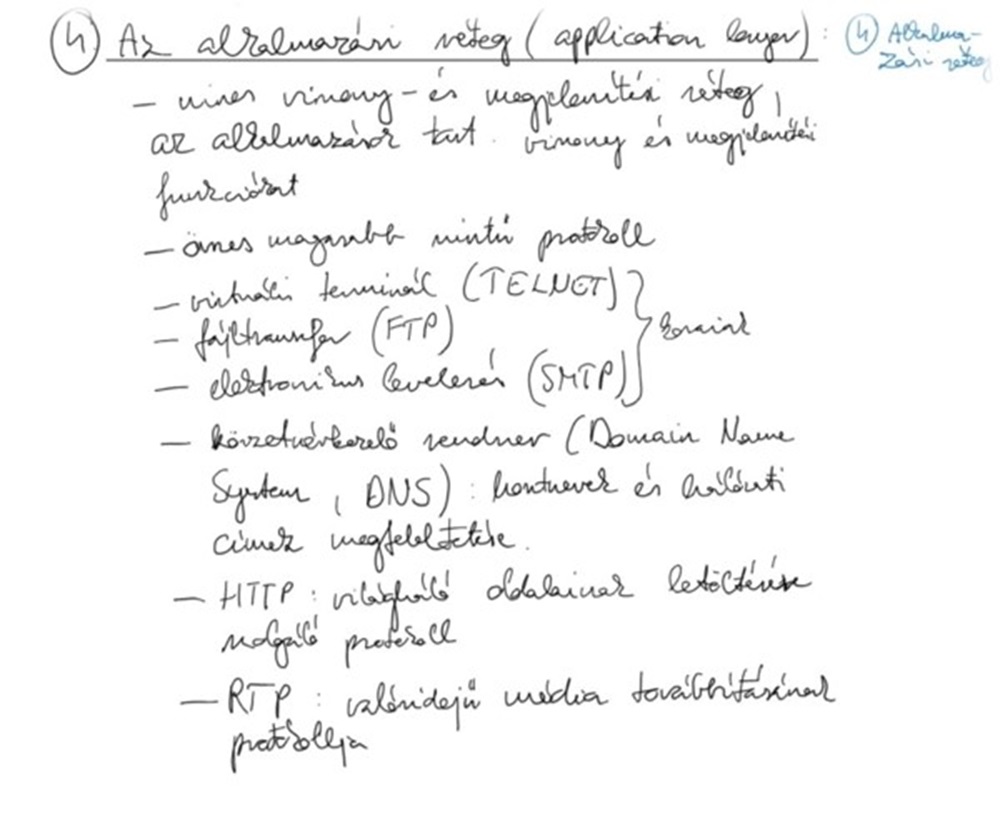 ④ Az alkalmazási réteg (application layer):
④ Alkalma-
zási réteg
– nincs viszony- és megjelenítési réteg,
az alkalmazások tart. viszony és megjelenítési
funkciókat
– összes magasabb szintű protokoll
– virtuális terminál (TELNET)
– fájltransfer (FTP)
– elektronikus levelezés (SMTP)
} koraiak
– körzetnévkezelő rendszer (Domain Name
System, DNS): hosztnevek és hálózati
címek megfeleltetése.
– HTTP: világháló oldalainak letöltésére
szolgáló protokoll
– RTP: valósidejű média továbbításának
protokollja